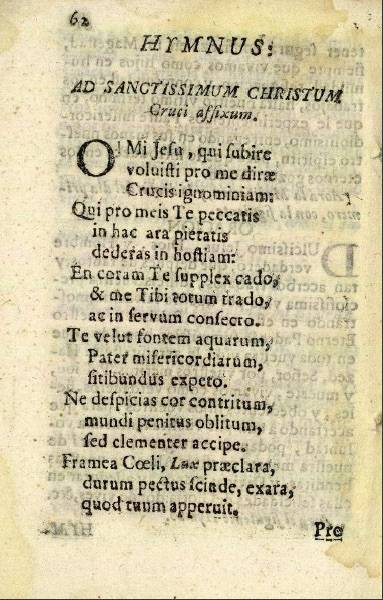 62
HYMNUS:
AD SANCTISSIMUM CHRISTUM
Cruci affixum.
O! Mi Jesu, qui subire
voluisti pro me diræ
Crucis ignominiam:
Qui pro meis Te peccatis
in hac ara pietatis
dederas in hostiam:
En coram Te supplex cado,
& me Tibi totum trado,
ac in servum consecro.
Te velut fontem aquarum,
Pater misericordiarum,
sitibundus expeto.
Ne despicias cor contritum,
mundi penitus oblitum,
sed clementer accipe.
Framea Cœli, Lux præclara,
durum pectus scinde, exara,
quod tuum apperuit.
Pro